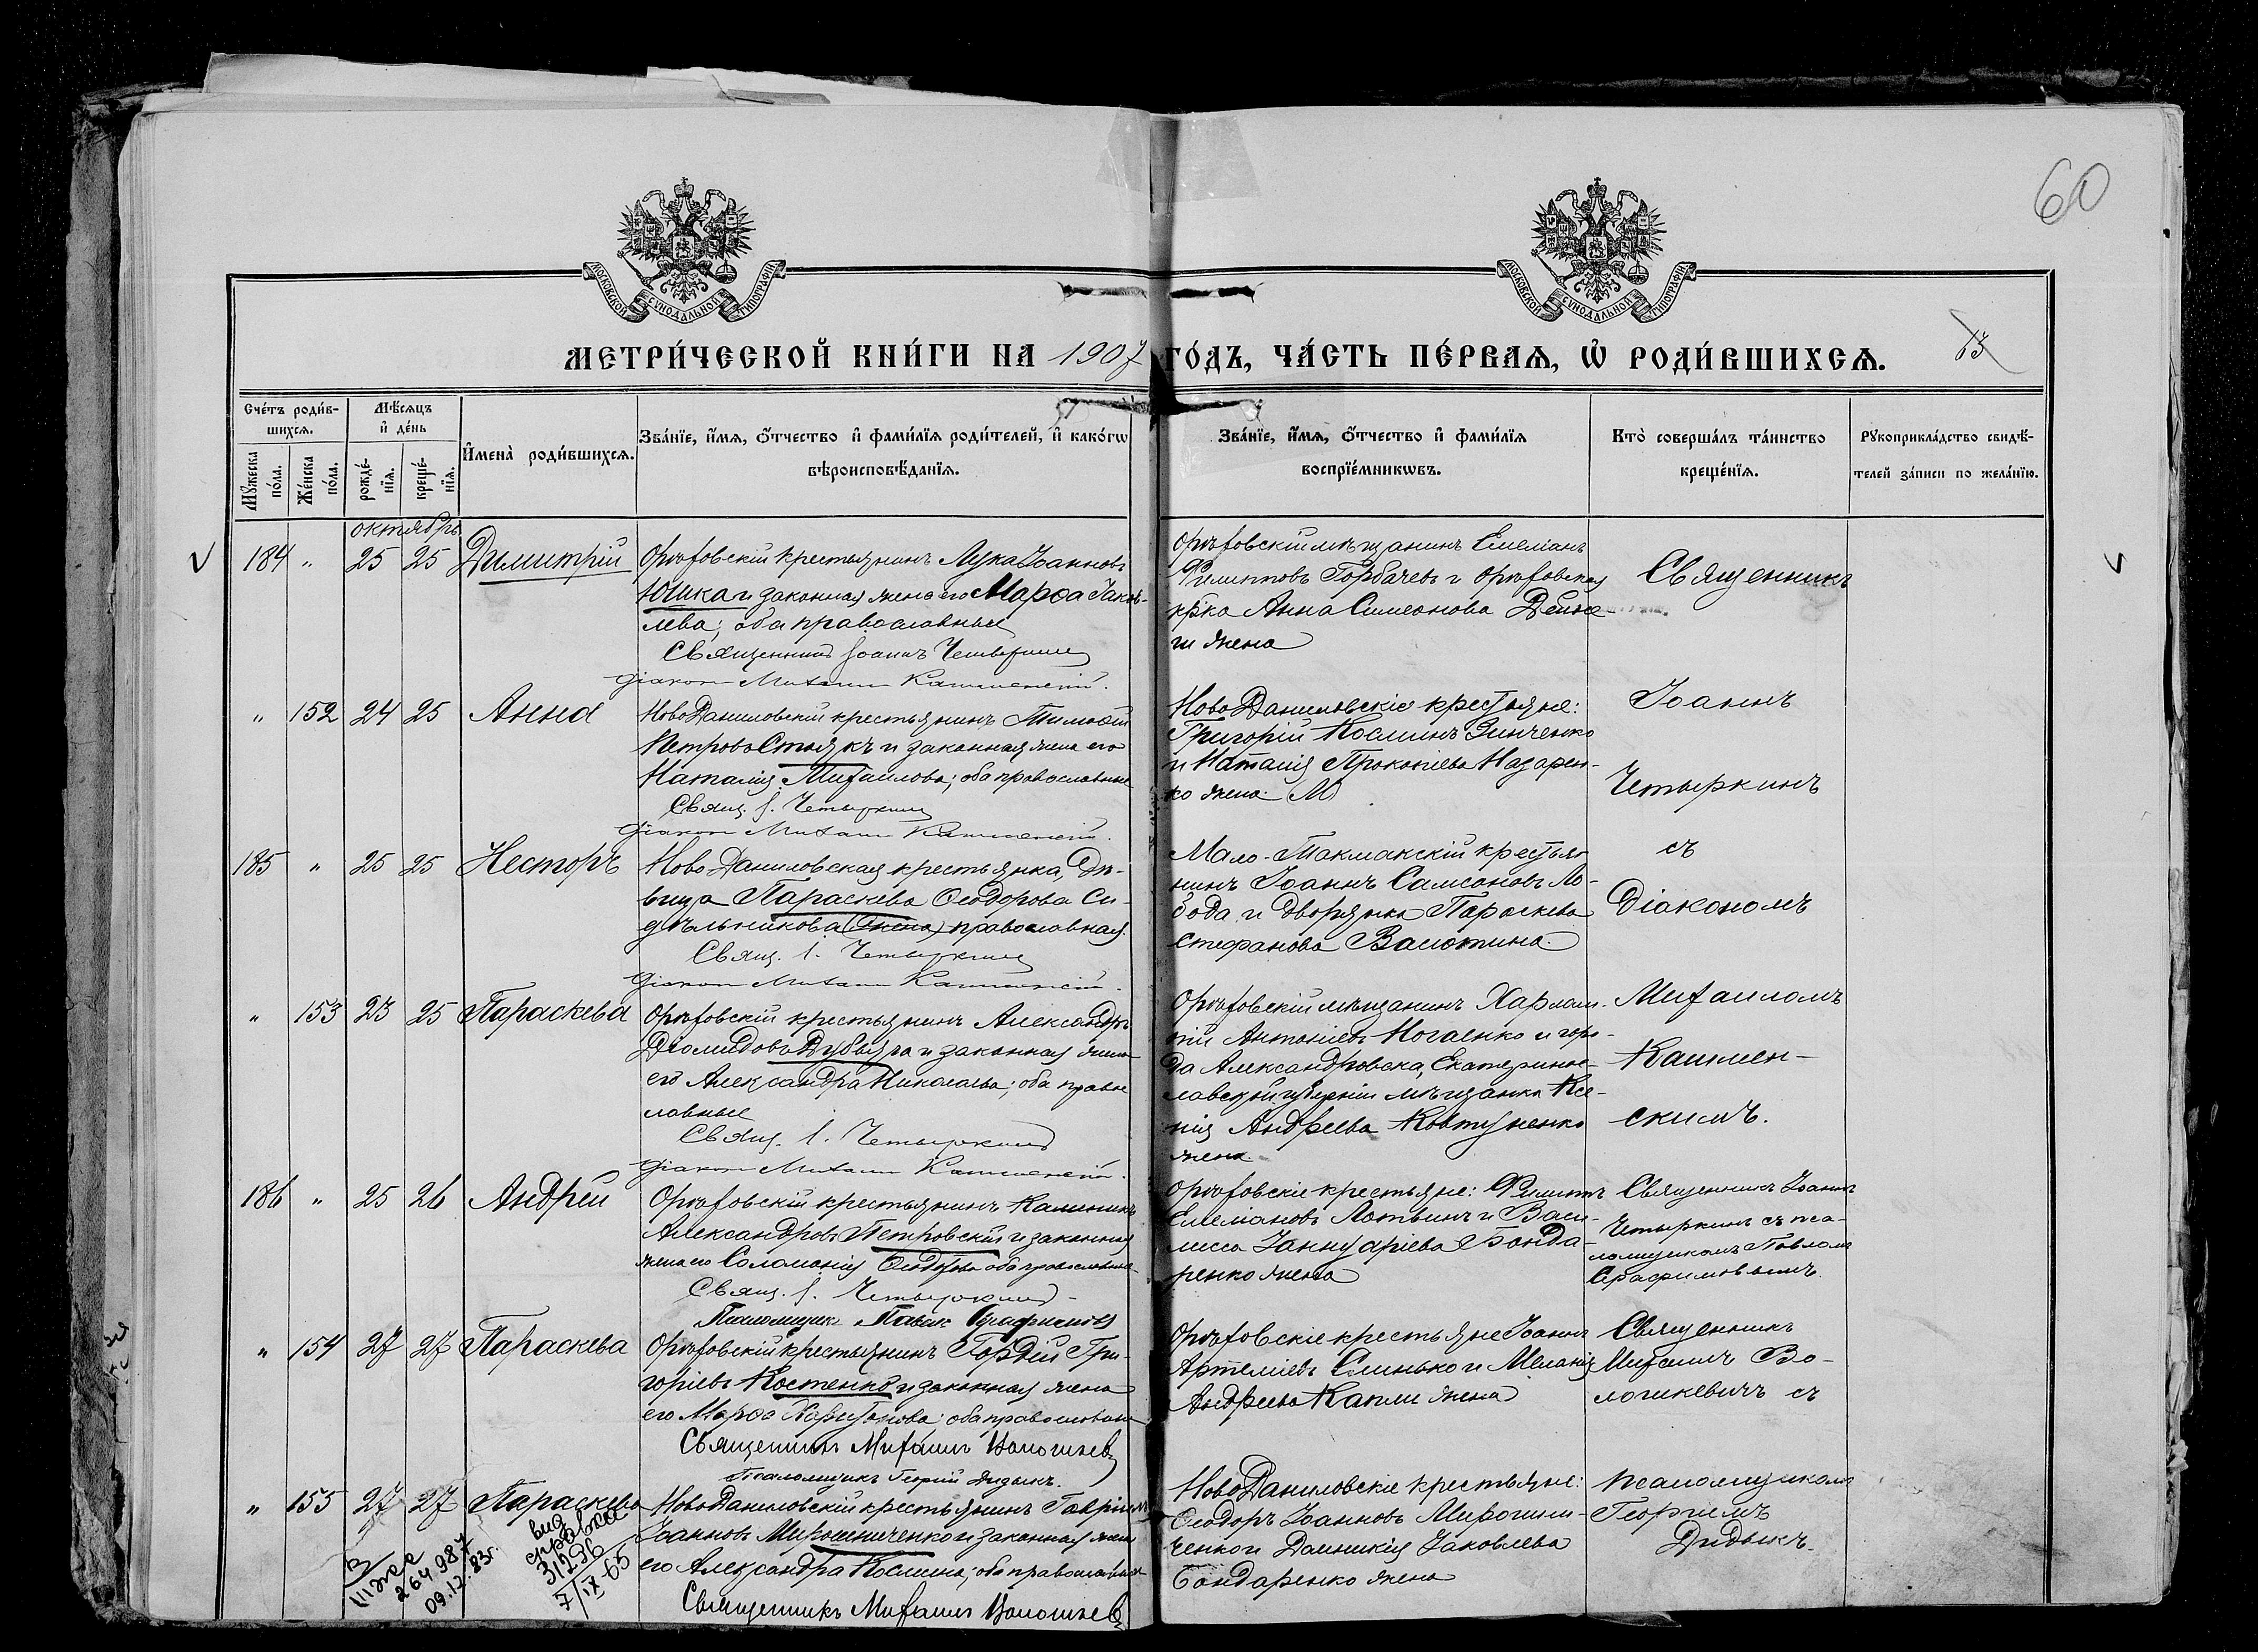 60
МОСКОВСКОЙ СѴНОДАЛЬНОЙ ТИПОГРАФІИ
МОСКОВСКОЙ СѴНОДАЛЬНОЙ ТИПОГРАФІИ
МЕТРИ́ЧЕСКОЙ КНИ́ГИ НА 1907 ГО́ДЪ, ЧА́СТЬ ПЕ́РВАЯ, Ѡ РОДИ́ВШИХСЯ.
Сче́тъ роди́в-
шихся.
Мѣ́сяцъ
и де́нь
Мꙋ́жеска
по́ла.
Же́нска
по́ла.
рожде́-
нїя.
креще́-
нїя.
Имена̀ роди́вшихся.
Зва́нїе, и́мя, о́тчество и фами́лїя роди́телей, и како́гѡ
вѣроисповѣ́данїя.
Зва́нїе, и́мя, о́тчество и фами́лїя
воспрїе́мникѡвъ.
Кто̀ соверша́лъ та́инство
креще́нїя.
Рꙋкоприкла́дство свидѣ́-
телей за́писи по жела́нїю.
октябрь
184 " 25 25 Димитрій
Орѣховскій крестьянинъ Лука Іоанновъ
Юшка и законная жена его Марѳа Іаков-
лева; оба православные
Священникъ Іоаннъ Четыркинъ
Діаконъ Михаилъ Кашменскій.
Орѣховскій мѣщанинъ Емеліанъ
Филипповъ Горбачевъ и орѣховская
кр-ка Анна Симеонова
жена
Священникъ
" 152 24 25 Анна
НовоДаниловскій крестьянинъ Тимоѳей
Петровъ Стоякъ и законная жена его
Наталія Михаилова; оба православные
Свящ. І. Четыркинъ
Діаконъ Михаилъ Кашменскій.
НовоДаниловскіе крестьяне:
Григорій Косминъ Зинченко
и Наталія Прокопіева Назарен-
ко жена.
Іоаннъ
Четыркинъ
185 " 25 25 Несторъ
НовоДаниловская крестьянка, Дѣ-
вица Параскева Ѳеодорова Си-
дѣльникова (жена) православная.
Свящ. І. Четыркинъ
Діаконъ Михаилъ Кашменскій.
Мало-Токмакскій крестья-
нинъ Іоаннъ Самсоновъ Ло-
бода и дворянка Параскева
Стефанова Васютина.
съ
Діакономъ
" 153 23 25 Параскева
Орѣховскій крестьянинъ Александръ
Діомидовъ Дубвяга и законная жена
его Александра Николаева; оба право
славные
Свящ. І. Четыркинъ
Діаконъ Михаилъ Кашменскій.
Орѣховскій мѣщанинъ Харлам-
пій Антоніевъ Ногаенко и горо-
да Александровска, Екатеринос-
лавской губерніи мѣщанка Ксе-
нія Андреева Ковтуненко
жена.
Михаиломъ
Кашмен-
скимъ.
186 " 25 26 Андрей
Орѣховскій крестьянинъ Каллиникъ
Александровъ Петровскій и законная
жена его Соломонія Ѳеодорова оба православные
Свящ. І. Четыркинъ
Псаломщикъ Павелъ Серафимовъ
Орѣховскіе крестьяне: Филиппъ
Емеліановъ Лотвинъ и Васи-
лисса Іаннуаріева Бонда-
ренко жена
Священникъ Іоаннъ
Четыркинъ съ пса-
ломщикомъ Павломъ
Серафимовымъ.
" 154 27 27 Параскева
Орѣховскій крестьянинъ Гордій Гри-
горіевъ Костенко и законная жена
его Марѳа Харитонова; оба православные
Священникъ Михаилъ
Псаломщикъ Георгій Дидыкъ.
Орѣховскіе крестьяне Іоаннъ
Артеміевъ Слинько и Меланія
Андреева жена
Священникъ
Михаилъ Во-
лошкевичъ съ
" 155 27 27 Параскева
НовоДаниловскій крестьянинъ Гавріилъ
Іоанновъ Мирошниченко и законная жена
его Александра Космина; оба православные
Священникъ Михаилъ
НовоДаниловскіе крестьяне:
Ѳеодоръ Іоанновъ Мирошни-
ченко и Домникія Іаковлева
Бондаренко жена
псаломщикомъ
Георгіемъ
Дидыкъ.
264987
09.12.83г.
вид
справка
31296
7/IX 65